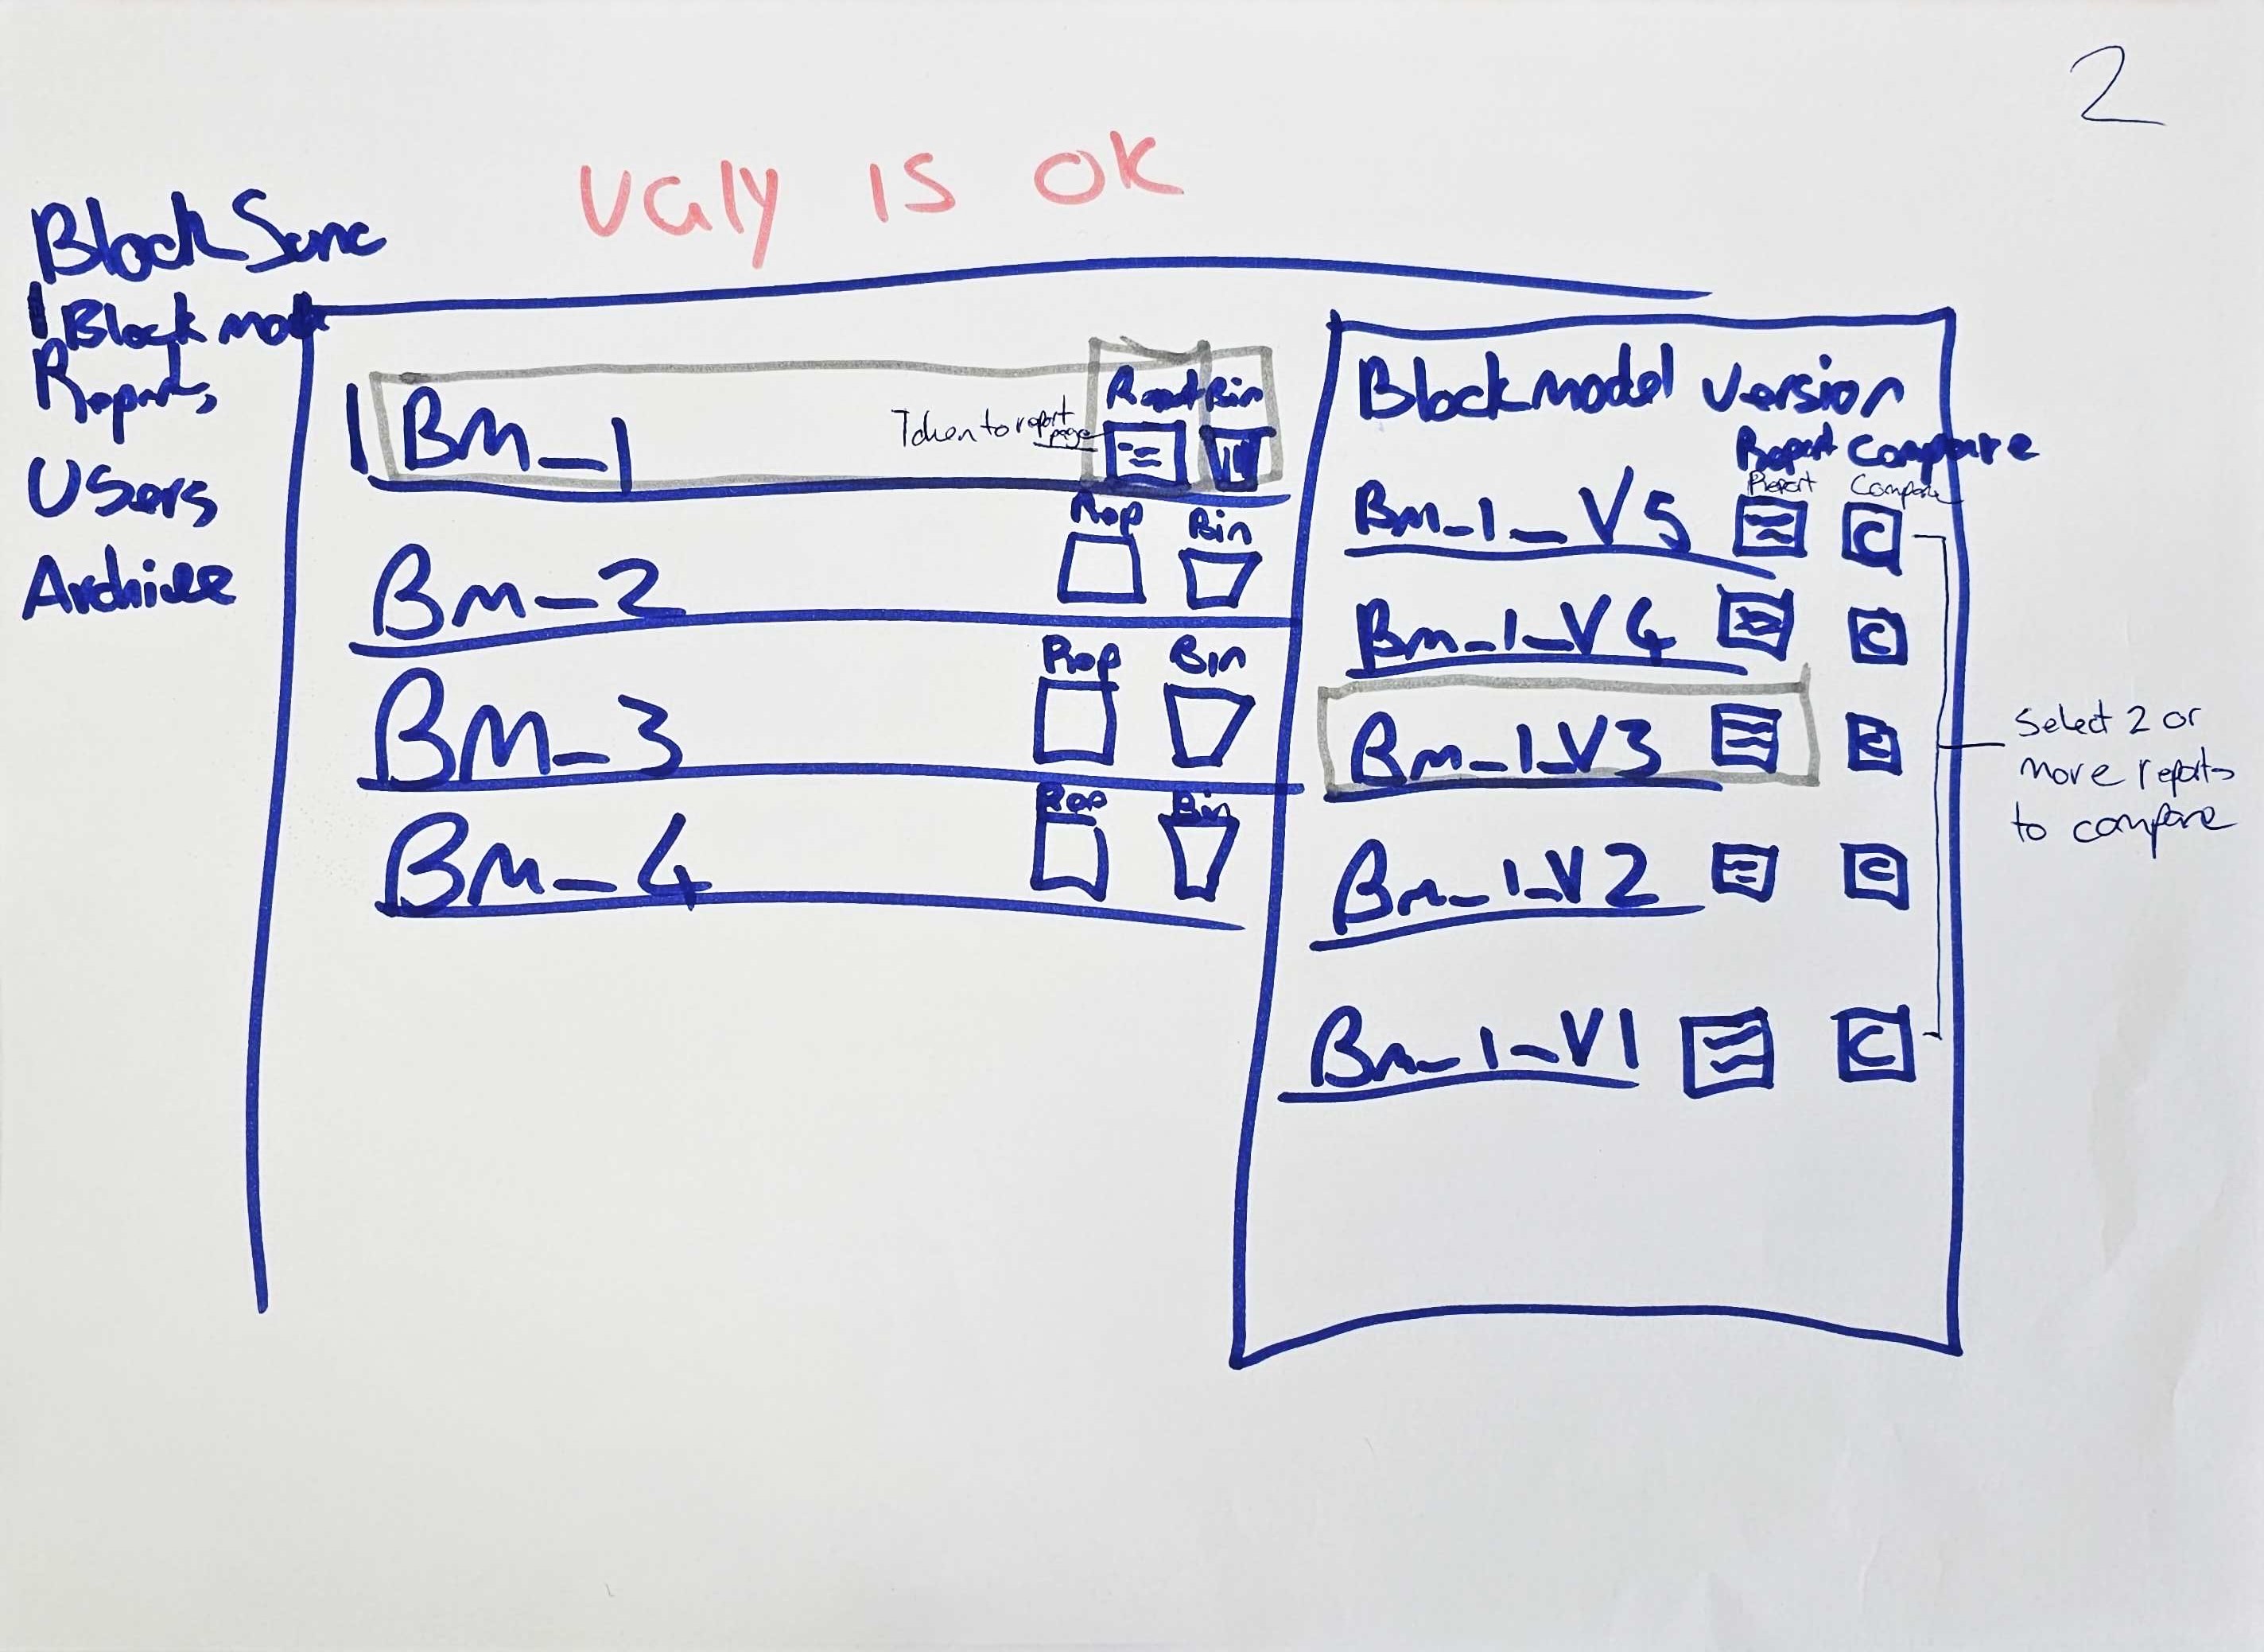 2
UGly IS OK
Block Sync
Block mode
Reports
Users
Archive
BM_1
Taken to report
page
Report Bin
BM_2
Rep Bin
BM_3
Rep Bin
BM_4
Rep Bin
Blockmodel Version
Report Compare
Report Compare
BM_1_V5
C
BM_1_V4
C
BM_1_V3
C
BM_1_V2
C
BM_1_V1
C
Select 2 or
more reports
to compare